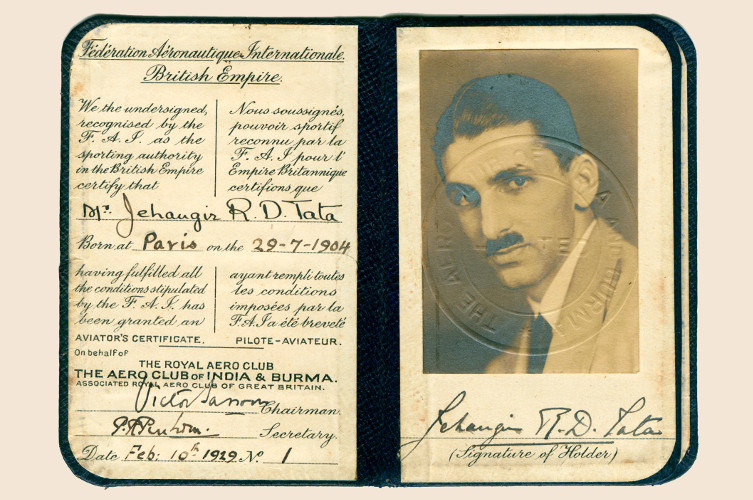 Fédération Aéronautique Internationale.
British Empire.
We the undersigned,
recognised by the
F. A. I. as the
sporting authority
in the British Empire
certify that
Nous soussignés,
pouvoir sportif
reconnu par la
F. A. I pour l'
Empire Britannique
certifions que
Mr. Jehangir R. D. Tata
Born at Paris on the 29-7-1904
having fulfilled all
the conditions stipulated
by the F. A. I. has
been granted an
AVIATOR'S CERTIFICATE.
ayant rempli toutes
les conditions
imposées par la
F.A.I a été breveté
PILOTE-AVIATEUR.
On behalf of
THE ROYAL AERO CLUB
THE AERO CLUB OF INDIA & BURMA.
ASSOCIATED ROYAL AERO CLUB OF GREAT BRITAIN.
Victor Sassoon Chairman.
Secretary.
Date Feb: 10th 1929 No. 1
THE AERO
INDIA AND BURMA
Jehangir R. D. Tata
(Signature of Holder)